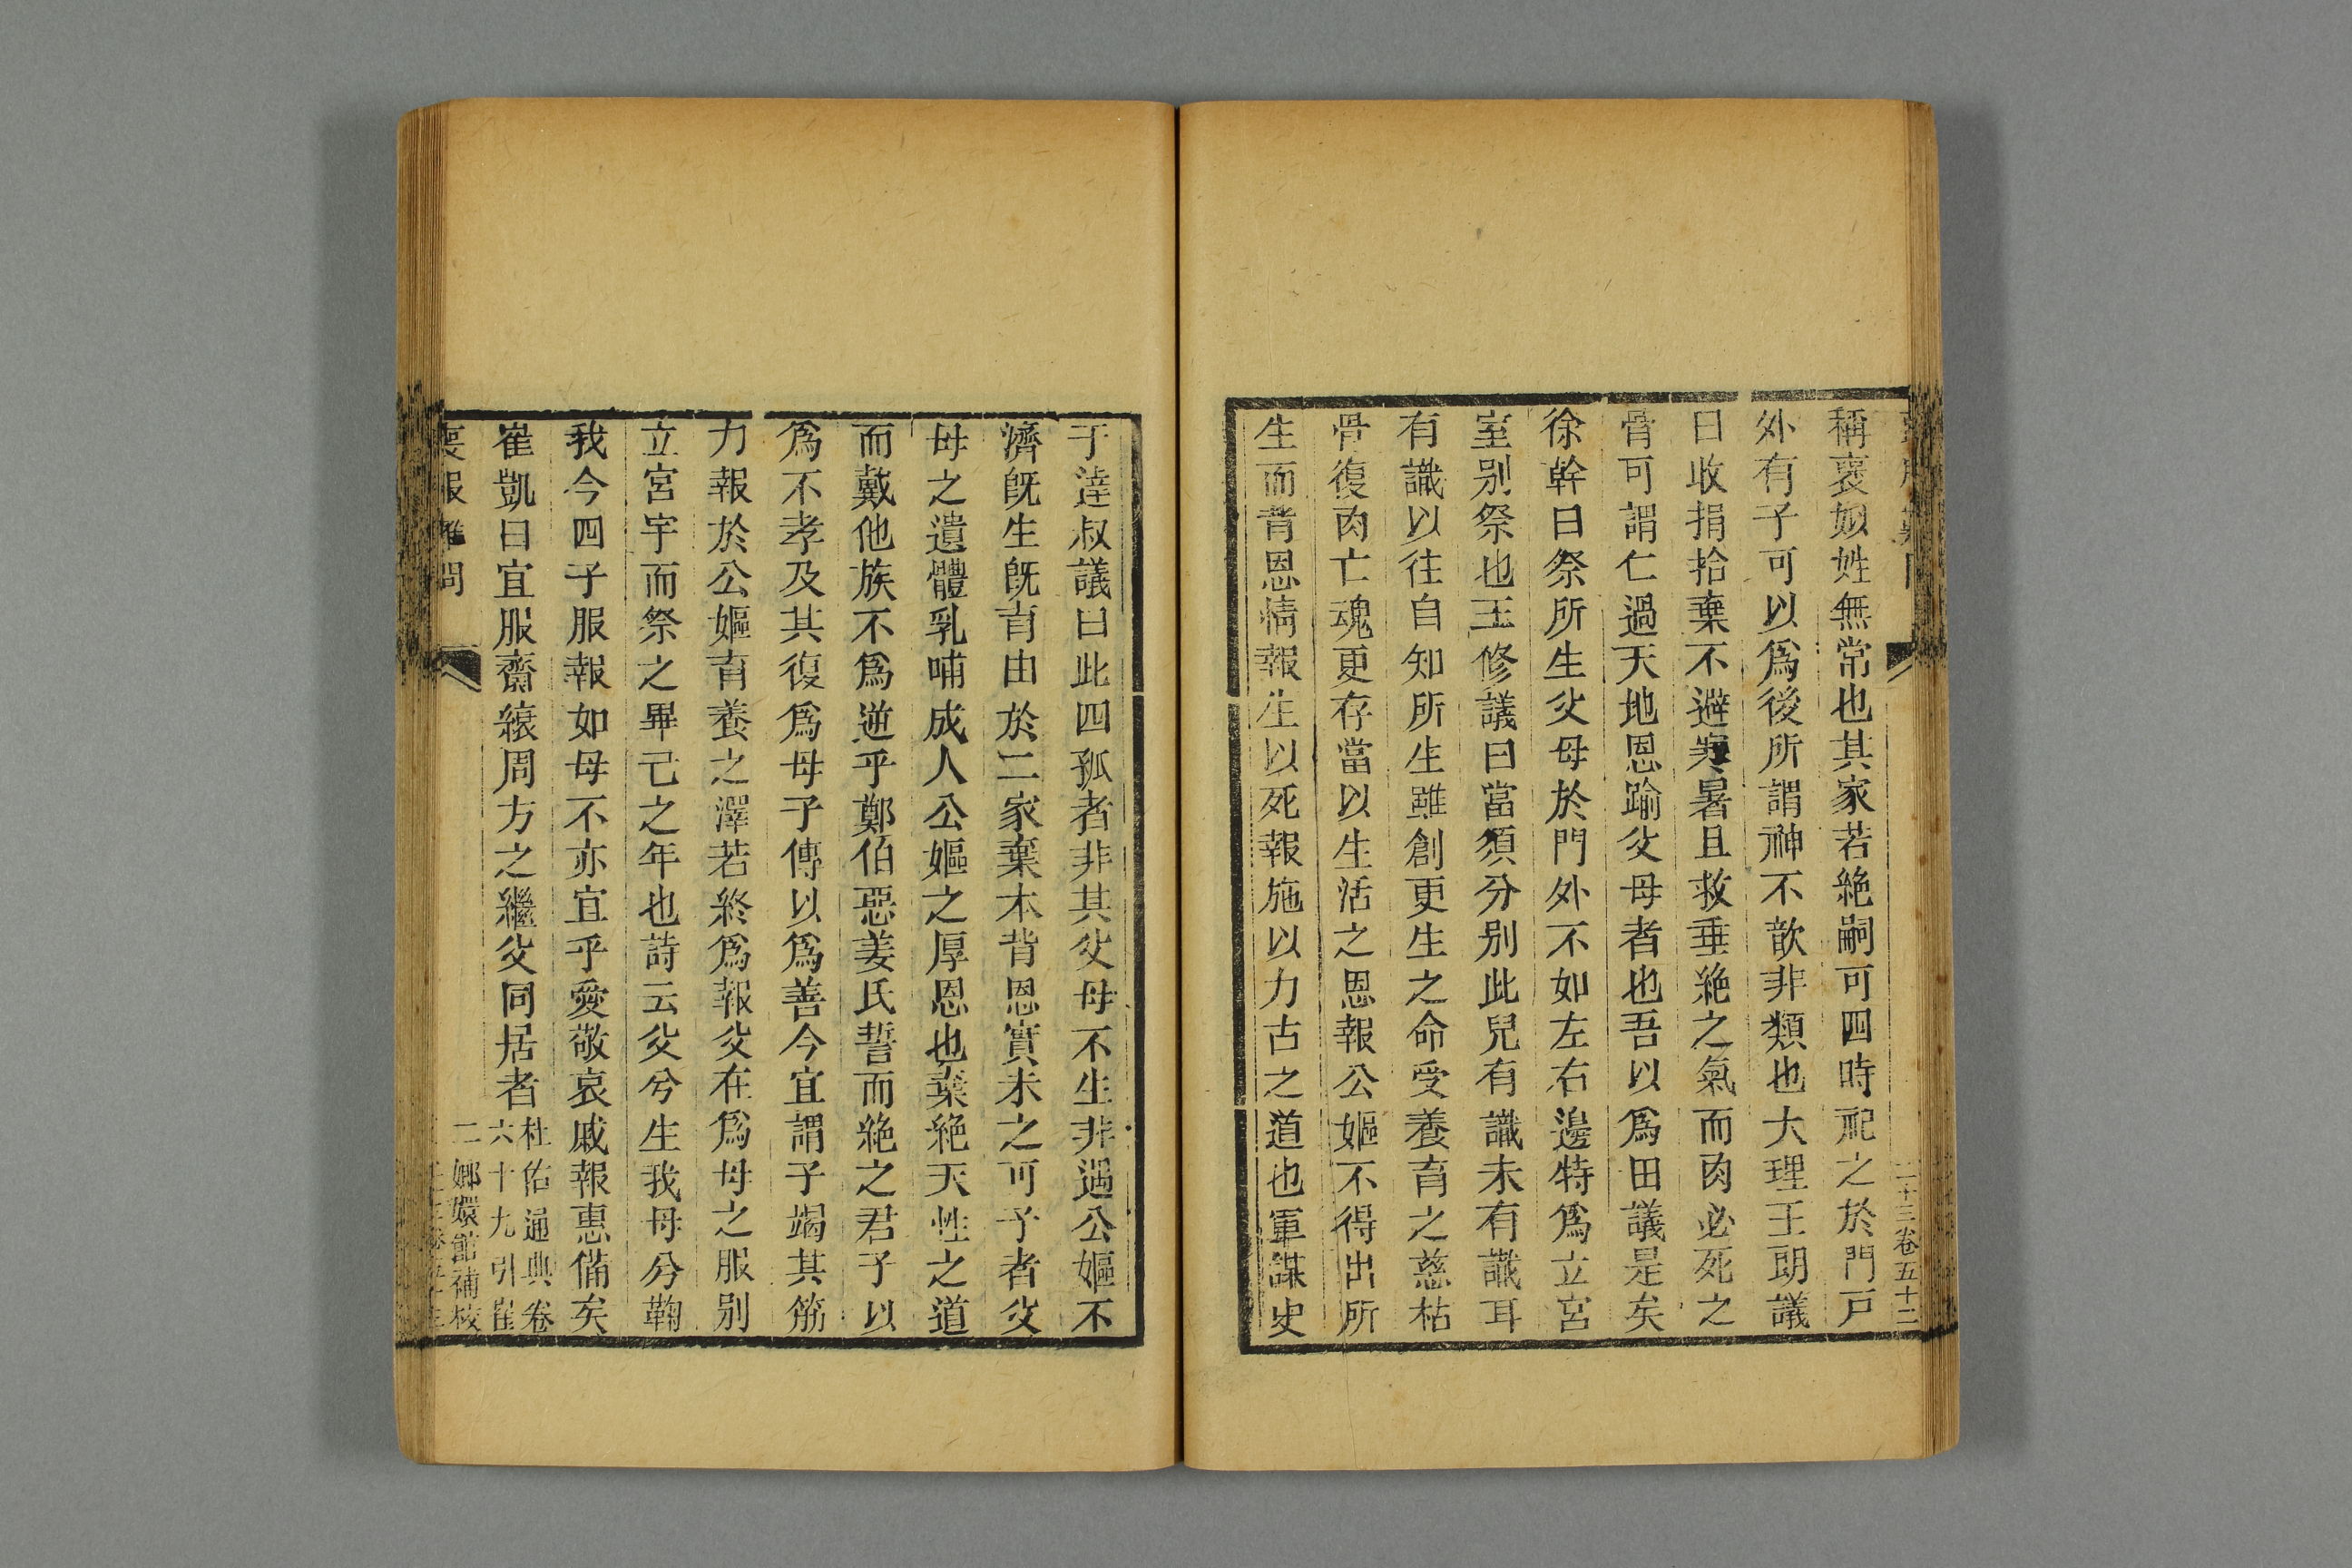 稱衺姒姓無常也其家若絶嗣可四時祀之於門戸
外有子可以爲後所謂神不歆非類也大理王朗議
曰收捐拾棄不避寒暑且救垂絶之氣而肉必死之
骨可謂仁過天地恩踰父母者也吾以爲田議是矣
徐幹曰祭所生父母於門外不如左右邊特爲立宮
室别祭也王修議曰當須分别此兒有識未有識耳
有識以往自知所生雖創更生之命受養育之慈枯
骨復肉亡魂更存當以生活之恩報公嫗不得出所
生而背恩情報生以死報施以力古之道也軍謀史
于達叔議曰此四孤者非其父母不生非遇公嫗不
濟既生既育由於二家棄本背恩實未之可子者父
母之遺體乳哺成人公嫗之厚恩也棄絶天性之道
而戴他族不爲逆乎鄭伯惡姜氏誓而絶之君子以
爲不孝及其復爲母子傳以爲善今宜謂子竭其筋
力報於公嫗育養之澤若終爲報父在爲母之服别
立宮宇而祭之畢己之年也詩云父兮生我母兮鞠
我今四子服報如母不亦宜乎愛敬哀戚報惠備矣
崔凱曰宜服齋縗周方之繼父同居者
杜佑通典卷
六十九引崔
二十三卷五十二
喪服難問
二
嫏嬛館補校